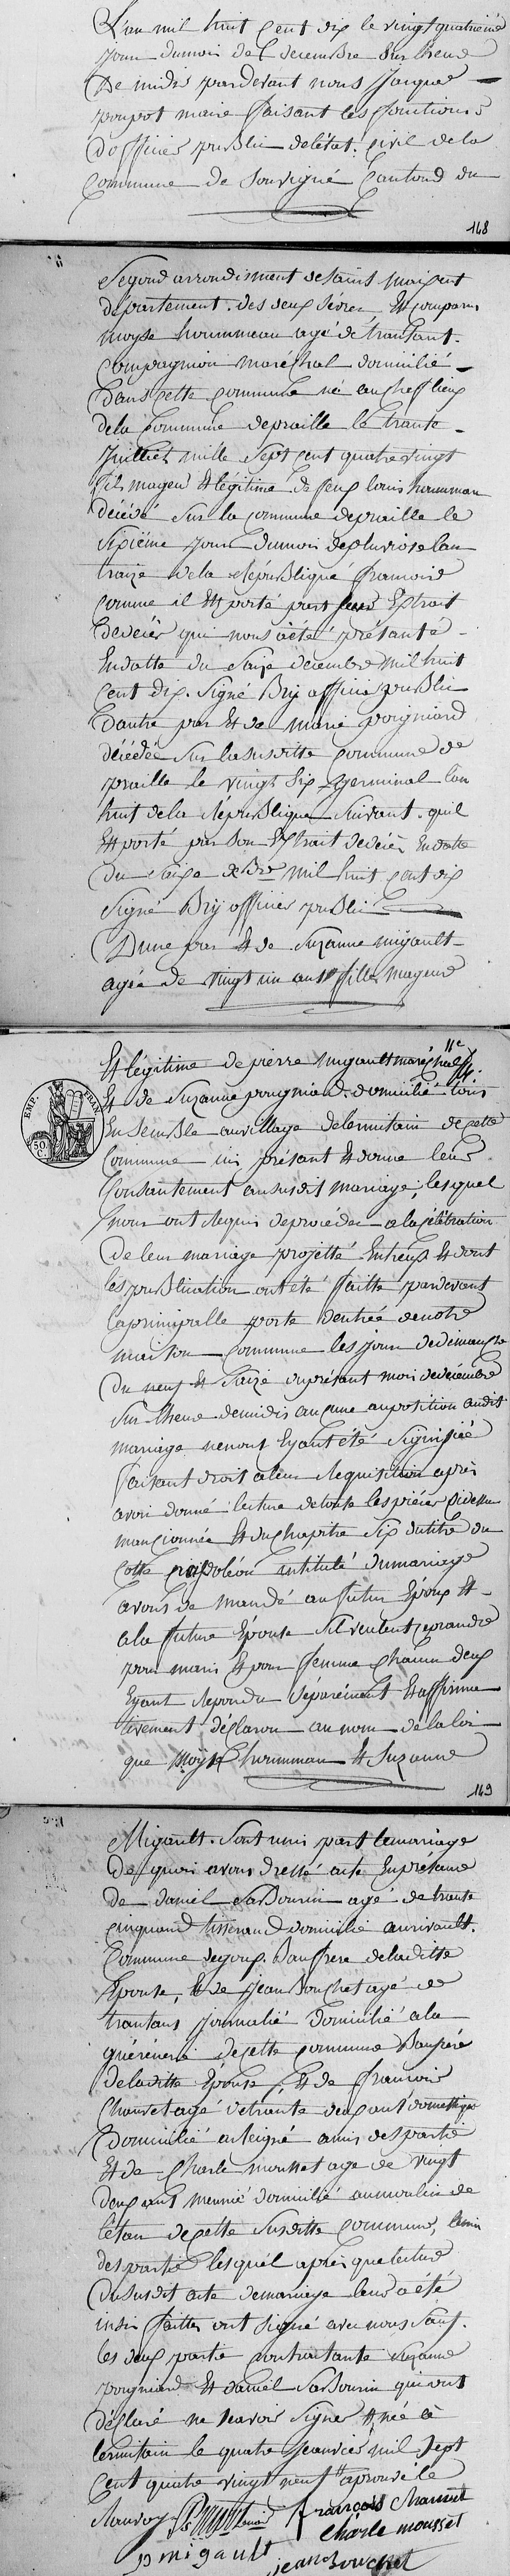 L'an mil huit cent dix le vingt quatrieme
jour dumois de decembre sur lheure
de midis pardevant nous Jacque
poupot maire faisant les fonctions
d officier publi deletat civil dela
Commune de Souvigné Canton du
148
Segond arrondisment de saint maixent
département des deux sevres Et comparu
moyse hoummeau agé de trantant
Compagnion maréchal domicilié
dans cette commune né au cheflieu
dela Commune depraille le trante
Juilliet mille sept cent quatre vingt
fils mageur & légitime de feux louis hoummeau
décédé sur la commune depraille le
sixiéme jour dumois de pluviose lan
traize dela république franсoise
comme il Est porté part son Extrait
dedecés qui nous a été présanté
Endatte du saize decembre mil huit
cent dix. Signé Brij officié publi
dautre par Et de marie pougniard
décédée sur lasusditte commune de
praille le vingt six germinal l'an
huit dela République suivant quil
Est porté par son Extrait dedecés Endatte
du saize debre mil huit cent dix
Signé Brij officier publi
Dune par Et de Suzanne migault
agée de vingt un ans fille mageure
& légitime de pierre migault maréchal
11e
EMP. FRAN.
50 C.
Et de Suzanne pougniard domicilié tous
Ensemble au village delermitain de cette
Commune ici présant & donne leur
Consantement au susdit mariage, lesquel
nous ont requis deprocéder a la célébration
de leur mariage projetté Entreux & dont
les publication ont été faitte pardevant
la principalle porte dentrée de notre
maison commune les jour de dimanche
du neuf & saize du présant mois dedecembre
sur lheure demidis aucune auposition audit
mariage nenous Eyant été signifiée
faisant droit aleur requisition après
avoir donné lecture de toute les piéces cidessus
mancionnée & duchapitre six dutitre du
Code napoléon intitulé dumariage
avons de mandé au futur Epoux &
a la future Epouse sil veulent ce prandre
pour mari & pour femme chacun deux
Eyant repondu séparément & affirma
tivement déclaron au nom dela loi
que Moyse hoummeau & Suzanne
149
Migault. Sont unis part le mariage
de quoi avons dressé acte Enprésance
de daniel Sardourin agé de trante
cinq ans tisserand domicilié aurivault
Commune degoux. Baufrere deladitte
Epouse, & de Jean Bouchet agé de
trantans journalié domicilié a la
guérénerie de cette commune Baufrére
deladitte Epouse, & de francois
Chauvet agé de trante deux ans domestique
domicilié a teigné amis despartie
Et de Charle mousset age de vingt
deux ans meunié domicilié aumoulin de
létan de cette susditte commune, lamis
despartie lesquel aprés que lecture
du susdit acte demariage leur a été
insi faitte ont signé avec nous sauf
les deux partie contractante Suzanne
pougniard & daniel Sardourin qui ont
déclaré ne scavoir signer & née a
lermitain le quatre Jeanvier mil sept
cent quatre vingt neuf aprouvé le
françois Chauvet
charle mousset
p migault
jean Bouchet